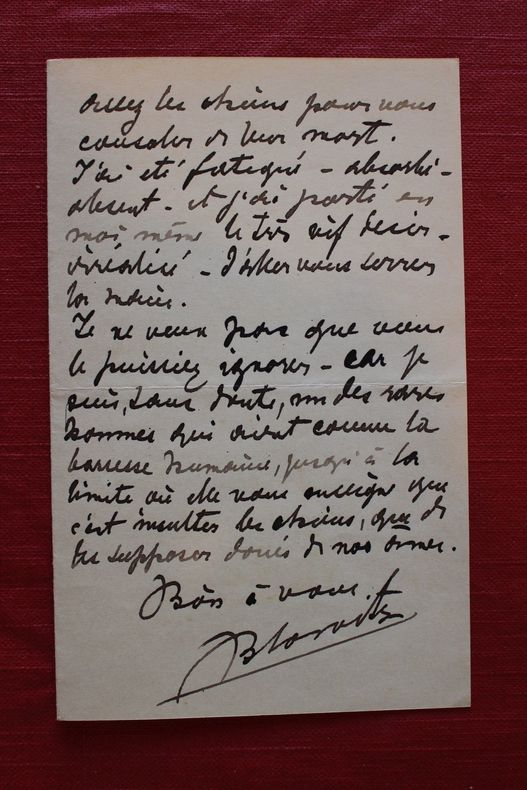 les chiens pour vous
consoler de leur mort.
J'ai été fatigué – absorbé –
absent – et j'ai porté en
moi même le très vif désir –
irréalisé – d'aller vous serrer
la main.
Je ne veux pas que vous
le puissiez ignorer – car je
suis, sans doute, un des rares
hommes qui aient connu la
bassesse humaine, jusqu'à la
limite où elle vous enseigne que
c'est insulter les chiens, que de
les supposer doués de nos âmes.
Bien à vous.
Blowitz